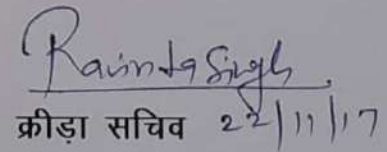 Ravinda Singh
क्रीड़ा सचिव 22/11/17